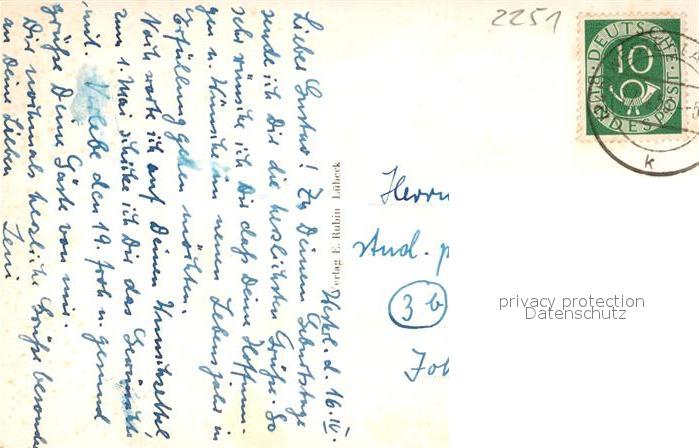 2251
DEUTSCHE
BUNDESPOST
10
k
Westerl. d. 16. IV.
Lieber Gustav! Zu Deinem Geburtstage
sende ich Dir die herzlichsten Grüße. So
sehr wünsche ich Dir daß Deine Hoffnun-
gen u. Wünsche im neuen Lebensjahr in
Erfüllung gehen möchten.
Noch warte ich auf Deinen Wunschzettel,
zum 1. Mai schicke ich Dir das
mit. Verlebe den 19. froh u. gesund
grüße Deine Gäste von mir.
Dir nochmals herzliche Grüße besonders
an Deine Lieben
Leni
Verlag E. Rubin Lübeck
Herrn
stud. p
3 b
Joh
privacy protection
Datenschutz